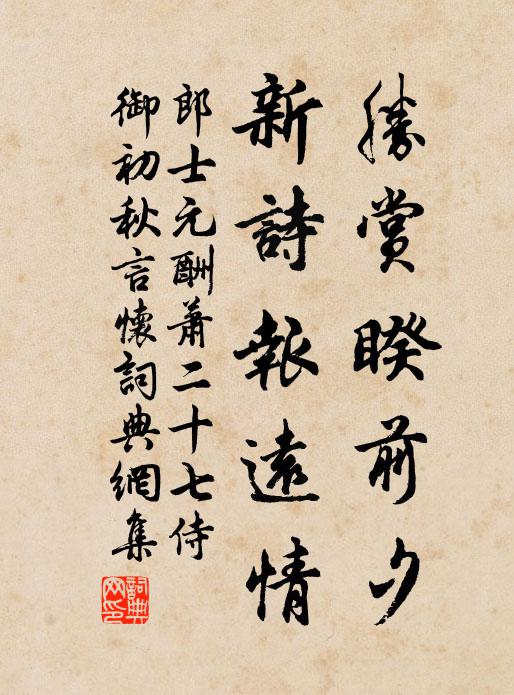 勝賞睽前夕
新詩報遠情
郎士元酬蕭二十七侍
御初秋言懷詞典網集
詞典網印